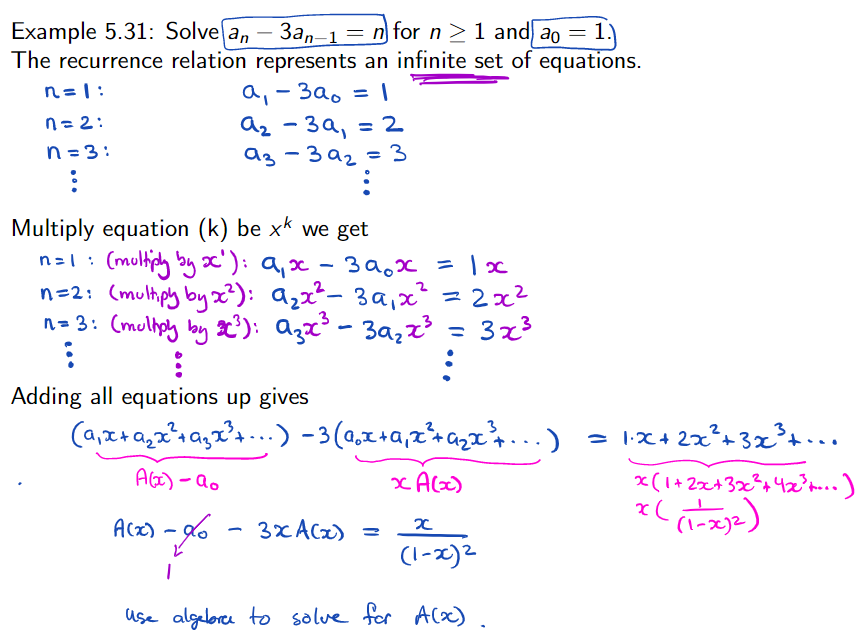 Example 5.31: Solve aₙ − 3aₙ₋₁ = n for n ≥ 1 and a₀ = 1.
The recurrence relation represents an infinite set of equations.
n=1: a₁ − 3a₀ = 1
n=2: a₂ − 3a₁ = 2
n=3: a₃ − 3a₂ = 3
⋮ ⋮
Multiply equation (k) be xᵏ we get
n=1 : (multiply by x¹): a₁x − 3a₀x = 1x
n=2: (multiply by x²): a₂x² − 3a₁x² = 2x²
n=3: (multiply by x³): a₃x³ − 3a₂x³ = 3x³
⋮ ⋮ ⋮
Adding all equations up gives
(a₁x + a₂x² + a₃x³ + ···) − 3(a₀x + a₁x² + a₂x³ + ...) = 1·x + 2x² + 3x³ + ...
A(x) − a₀ x A(x) x(1 + 2x + 3x² + 4x³ + ...)
x(1/(1−x)²)
A(x) − a₀ − 3xA(x) = x/(1−x)²
1
use algebra to solve for A(x).